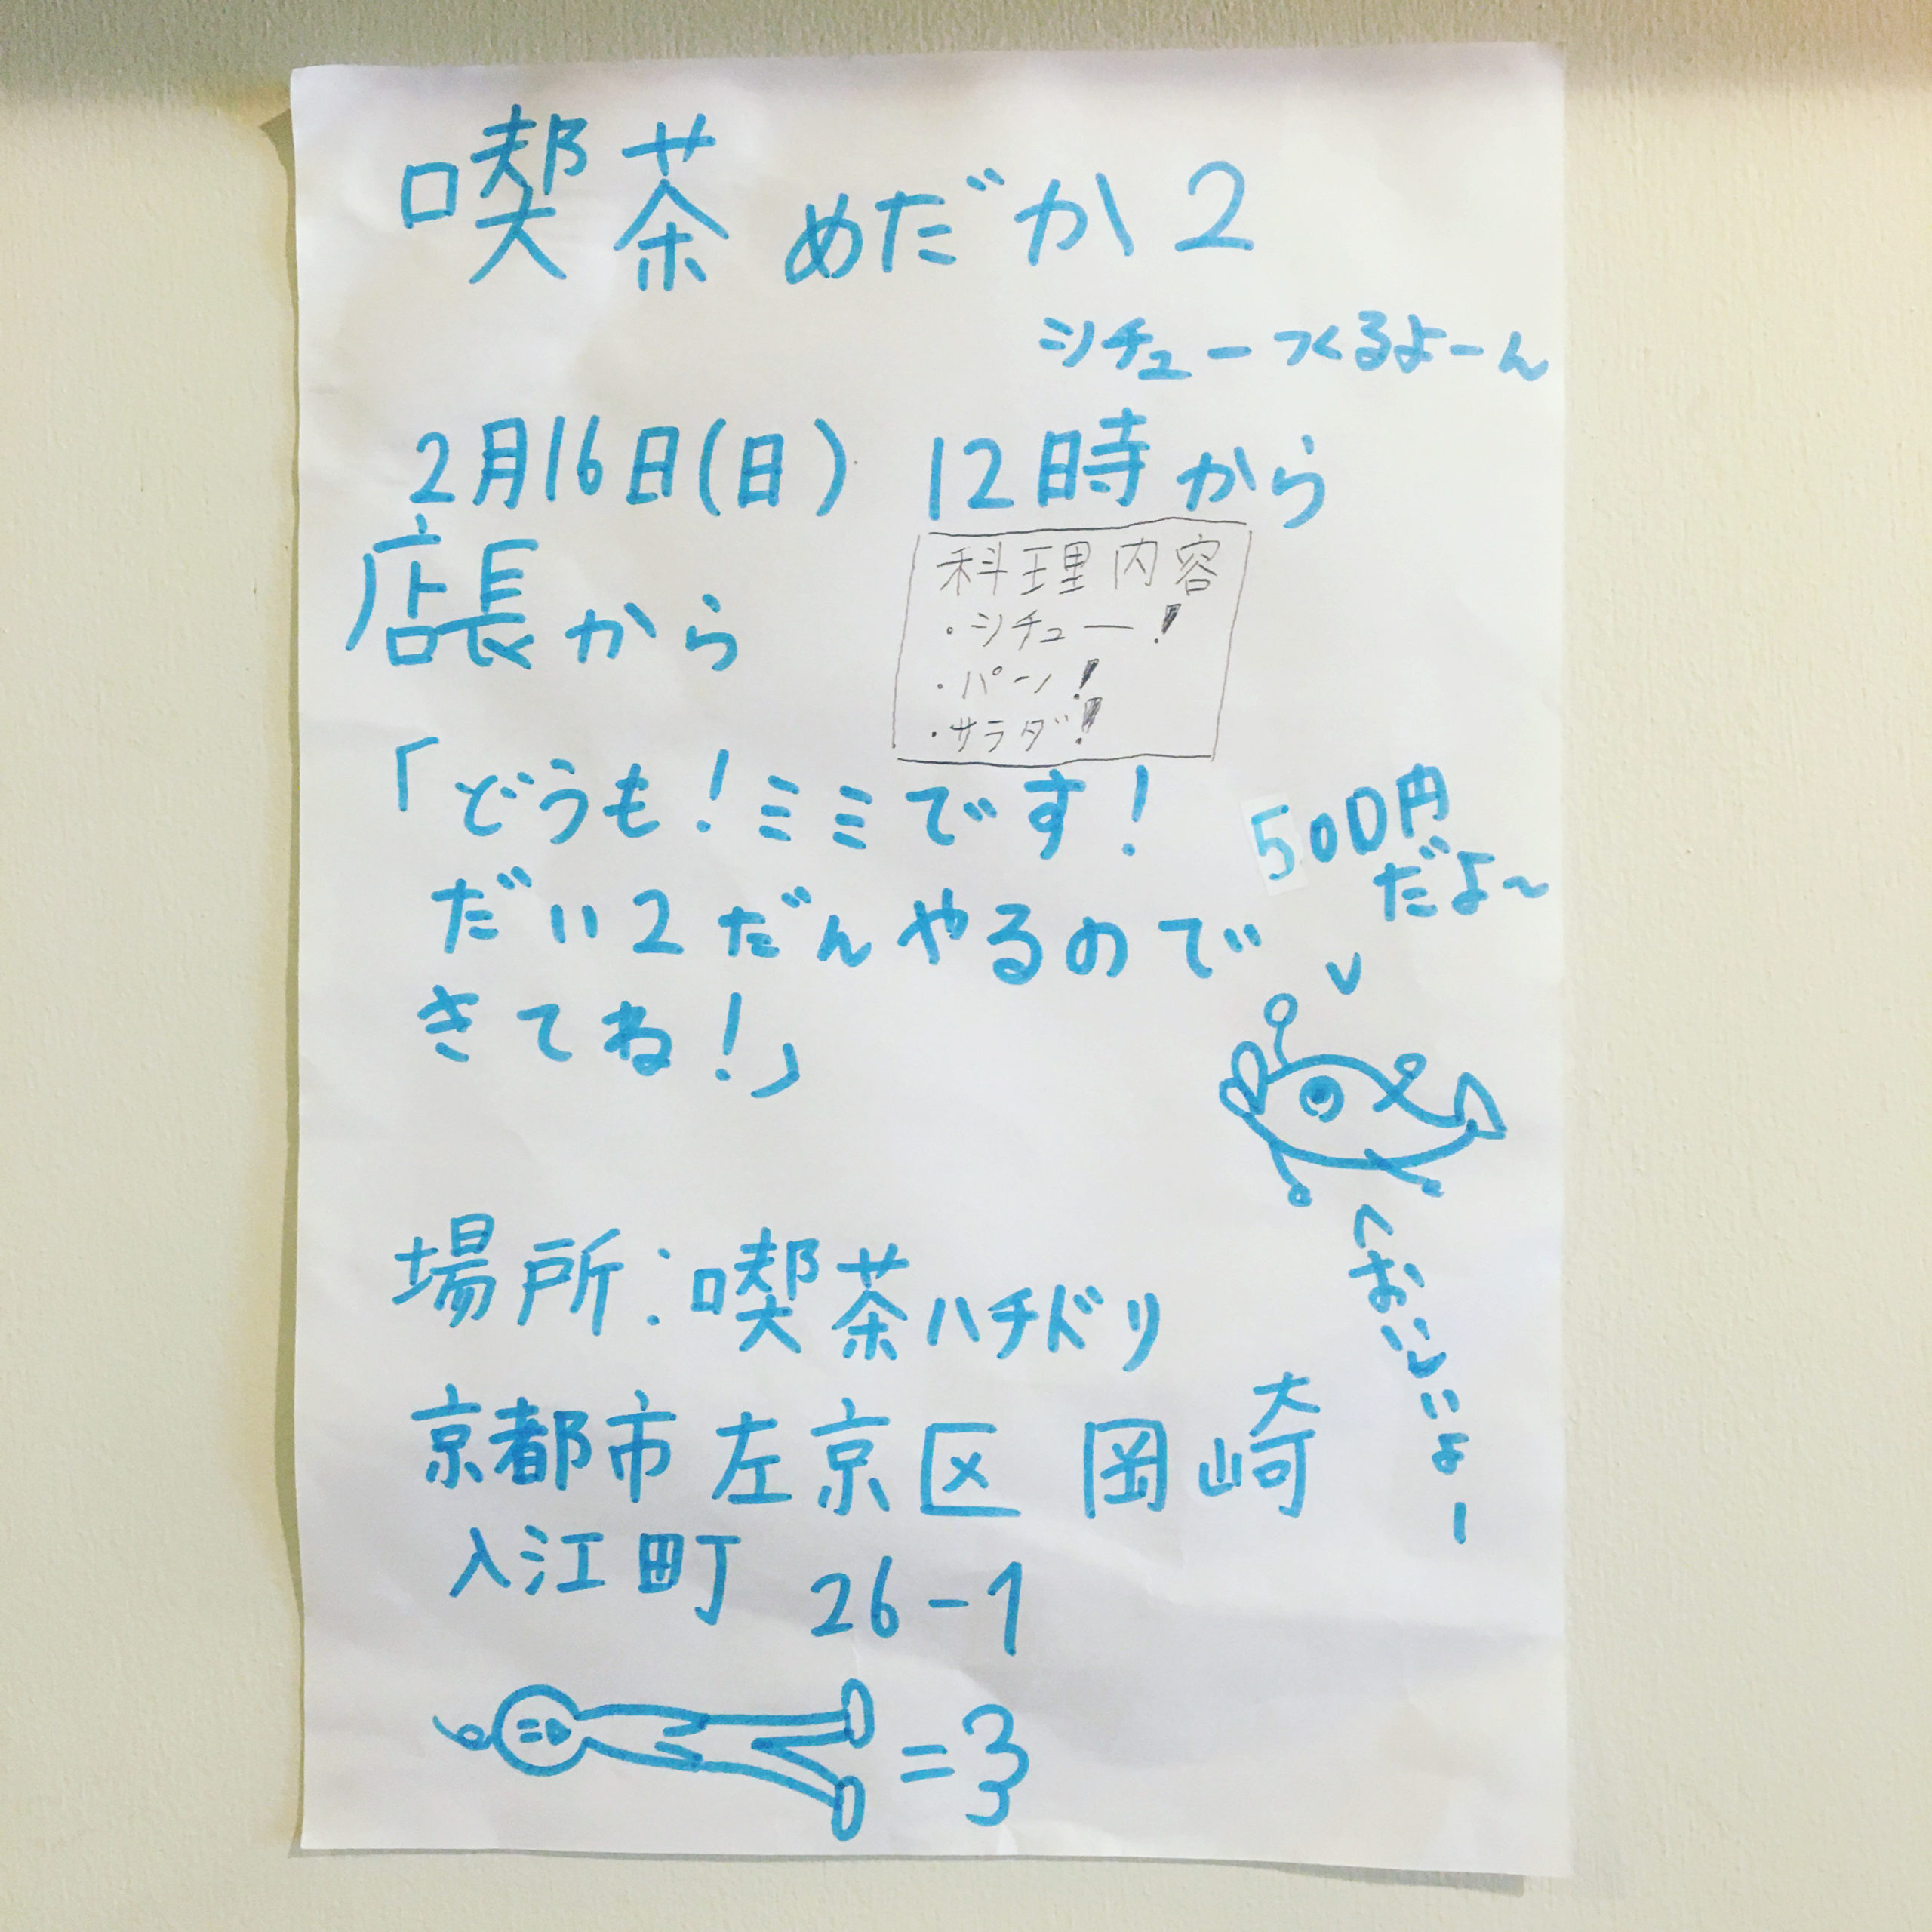 喫茶めだか2
シチューつくるよーん
2月16日(日) 12時から
店長から
料理内容
・シチュー!
・パン!
・サラダ!
「どうも!ミミです!
だい2だんやるので
きてね!」
500円
だよ~
おいしいよー
場所:喫茶ハチドリ
京都市左京区 岡崎
入江町 26-1
=3